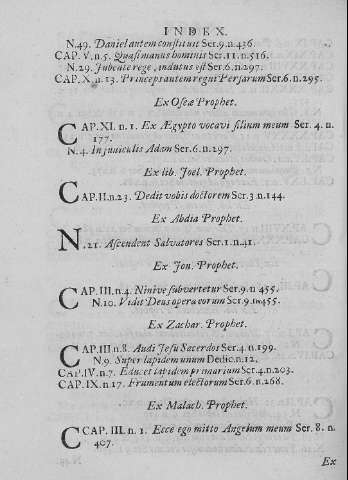 INDEX.
N.49. Daniel autem constituit Ser.9.n.436.
CAP.V.n.5. Quasi manus hominis Ser.11.n.516.
N.29. Jubente rege, indutus est Ser.6.n.297.
CAP.X.n.13. Princeps autem regni Persarum Ser.6.n.295.
Ex Oseæ Prophet.
CAP.XI. n.1. Ex Ægypto vocavi filium meum Ser. 4. n.
177.
N.4. In funiculis Adam Ser.6.n.297.
Ex lib. Joel. Prophet.
CAP.II.n.23. Dedit vobis doctorem Ser.3.n.144.
Ex Abdia Prophet.
N.21. Ascendent Salvatores Ser.1.n.41.
Ex Jon. Prophet.
CAP.III.n.4. Ninive subvertetur Ser.9.n 455.
N.10. Vidit Deus opera eorum Ser.9.n.455.
Ex Zachar. Prophet.
CAP.III n.8. Audi Jesu Sacerdos Ser.4.n.199.
N.9. Super lapidem unum Dedic.n.12.
CAP.IV.n.7. Educet lapidem primarium Ser.4.n.203.
CAP.IX.n.17. Frumentum electorum Ser.6.n.268.
Ex Malach. Prophet.
CAP.III. n.1. Ecce ego mitto Angelum meum Ser. 8. n.
407.
Ex